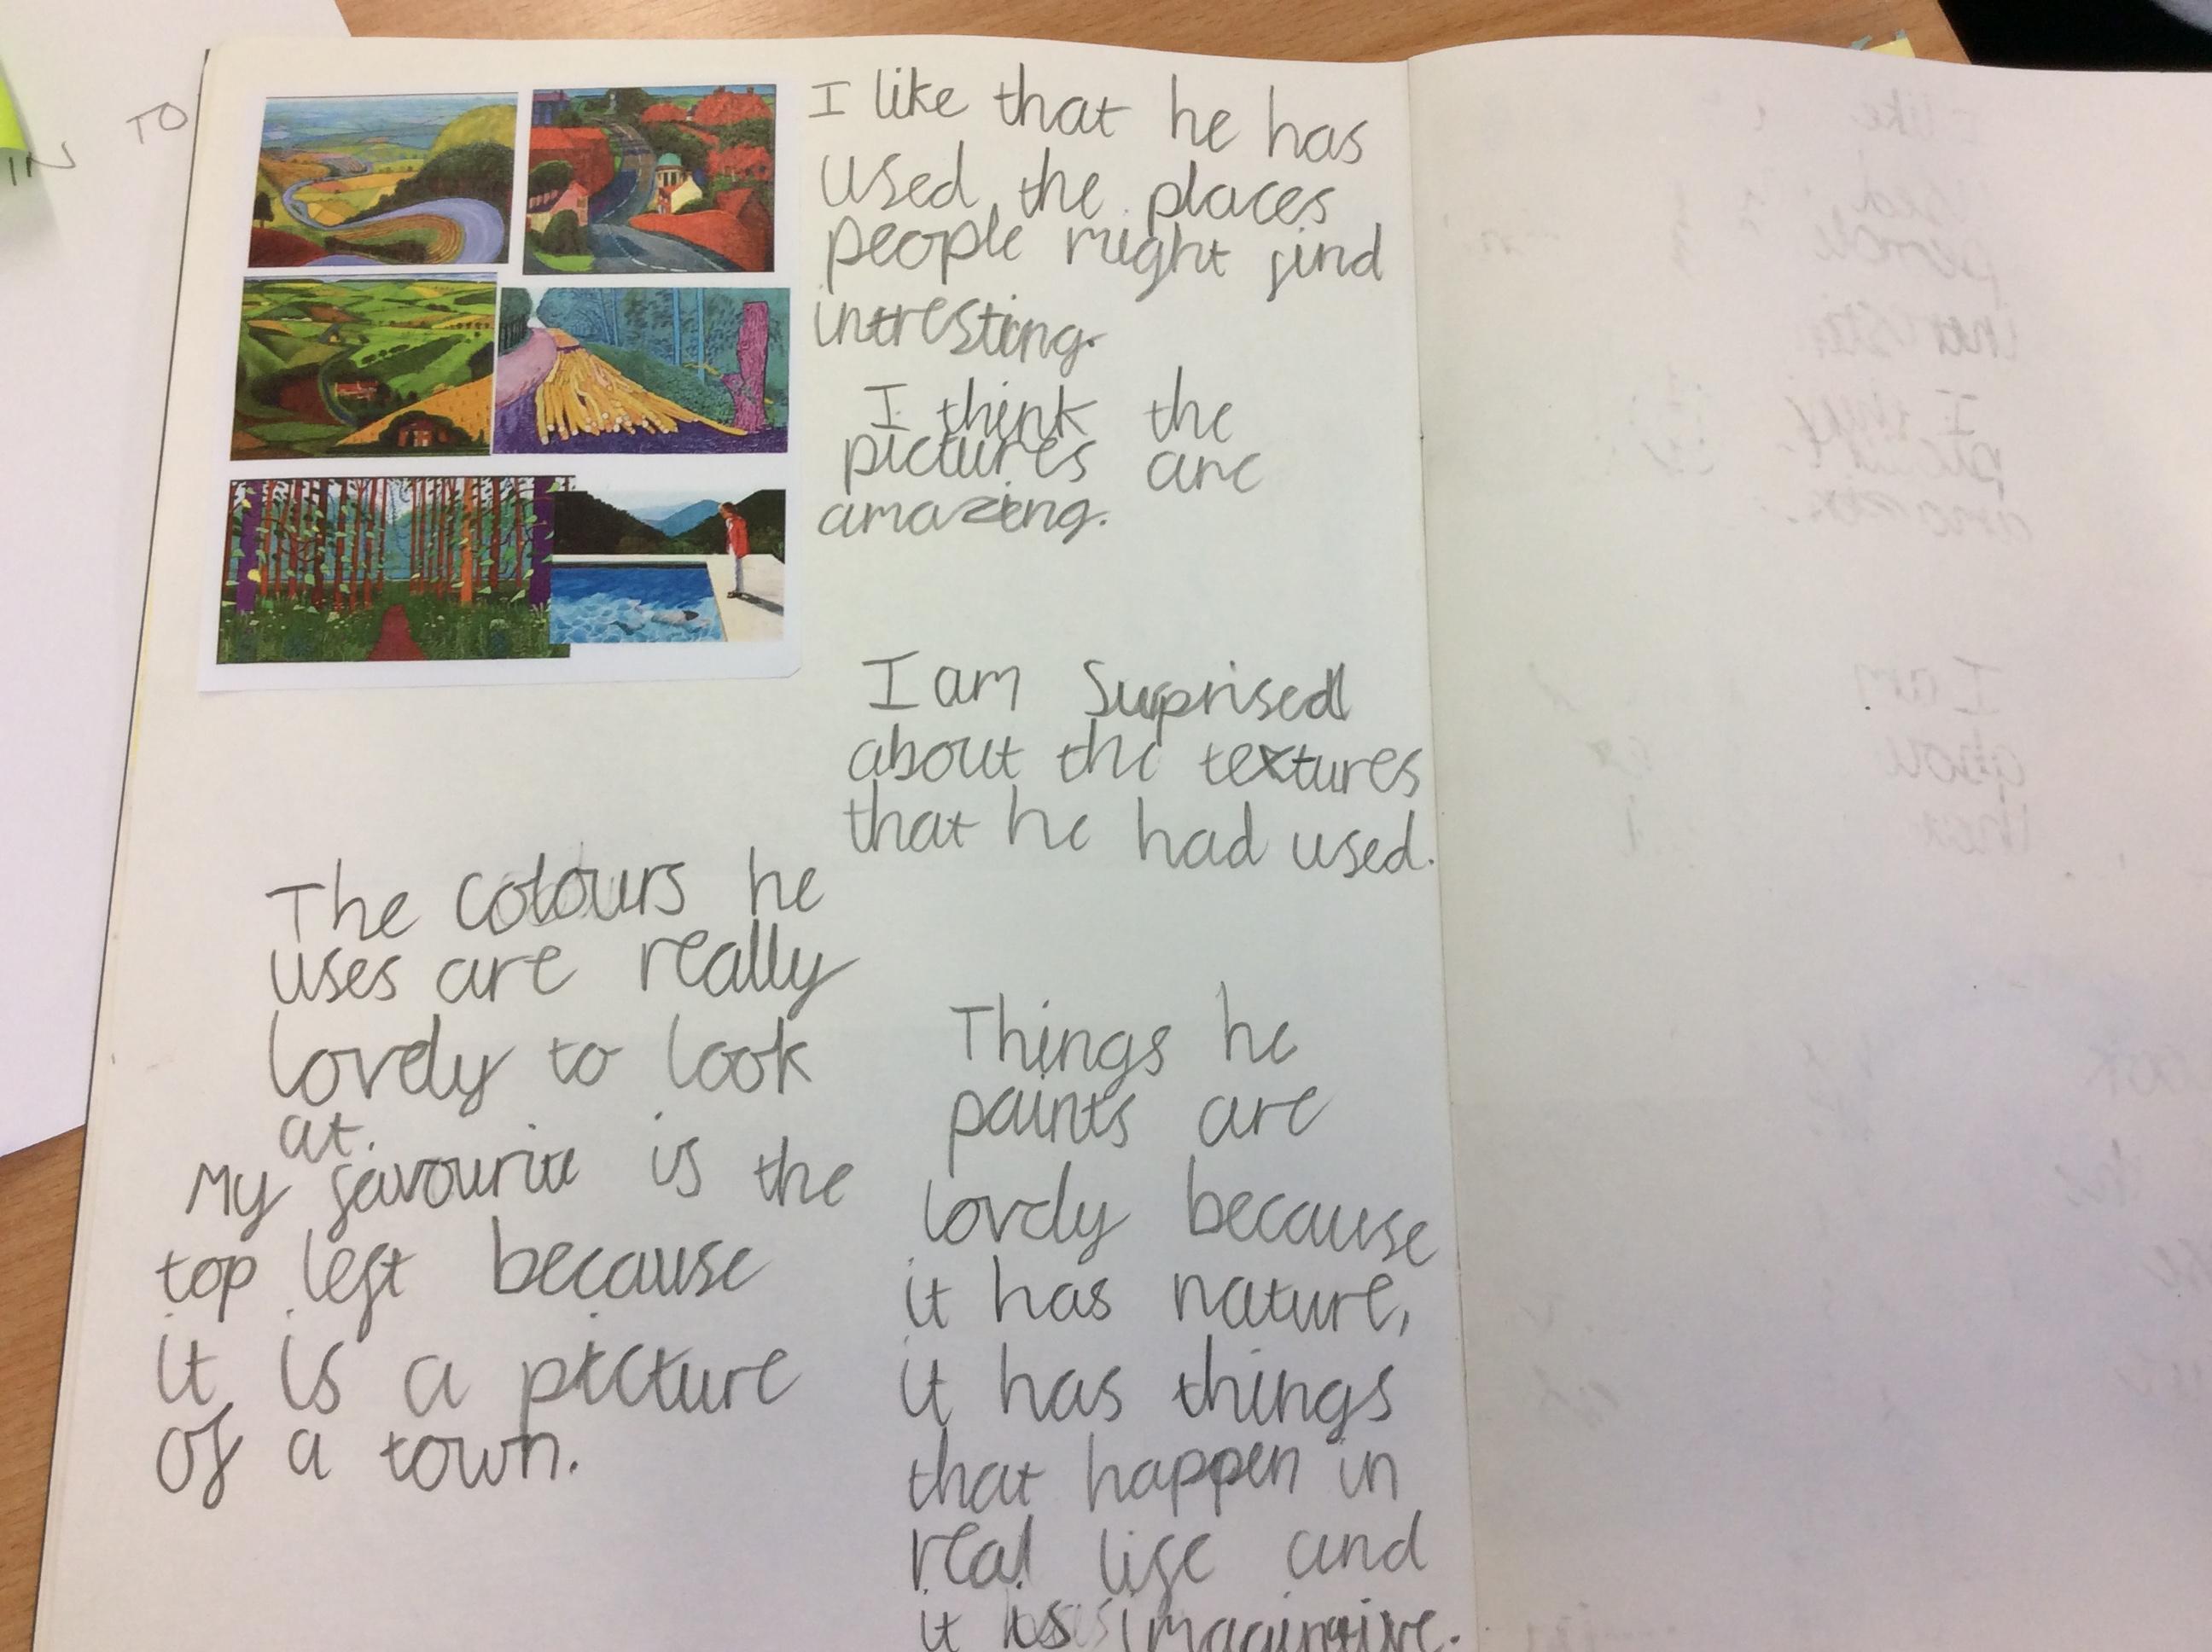 TO
IN
I like that he has
used the places
people might find
intresting.
I think the
pictures are
amazing.
I am Surprised
about the textures
that he had used.
The colours he
uses are really
lovely to look
at.
My favourite is the
top left because
it is a picture
of a town.
Things he
paints are
lovely because
it has nature,
it has things
that happen in
real life and
it is